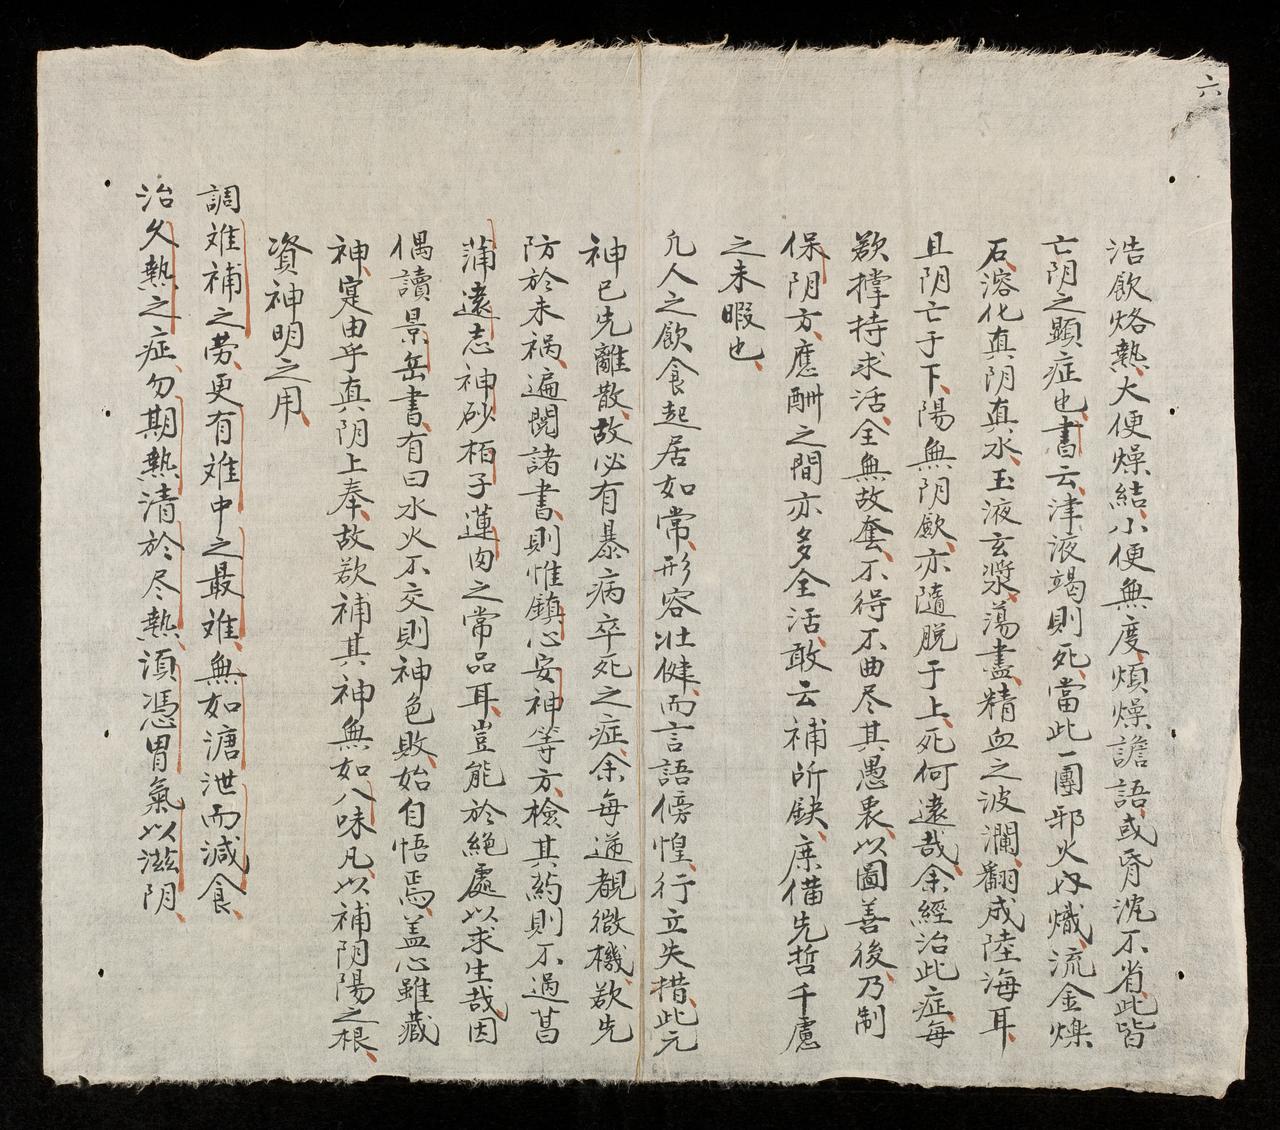 六
浩飲烙熱大便燥結小便無度煩燥譫語或昏沈不省此皆
亡阴之顯症也書云津液竭則死當此一團邪火內熾流金爍
石溶化真阴真水玉液玄漿蕩盡精血之波瀾翻成陸海耳
且阴亡于下陽無阴歛亦隨脱于上死何遠哉余經治此症每
欲撑持求活全無故套不得不曲尽其愚衷以圖善後乃制
保阴方應酬之間亦多全活敢云補所缺庶備先哲千慮
之未暇也
凢人之飲食起居如常形容壯健而言語傍惶行立失措此元
神已先離散故必有暴病卒死之症余每逆覩微機欲先
防於未祸遍閲諸書則惟鎮心安神等方檢其药則不過菖
蒲遠志神砂栢子蓮肉之常品耳豈能於絕處以求生哉因
偶讀景岳書有曰水火不交則神色敗始自悟焉盖心雖藏
神寔由乎真阴上奉故欲補其神無如八味凡以補阴陽之根
資神明之用
調难補之劳更有难中之最难無如溏泄而減食
治久熱之症勿期熱清於尽熱湏憑胃氣以滋阴